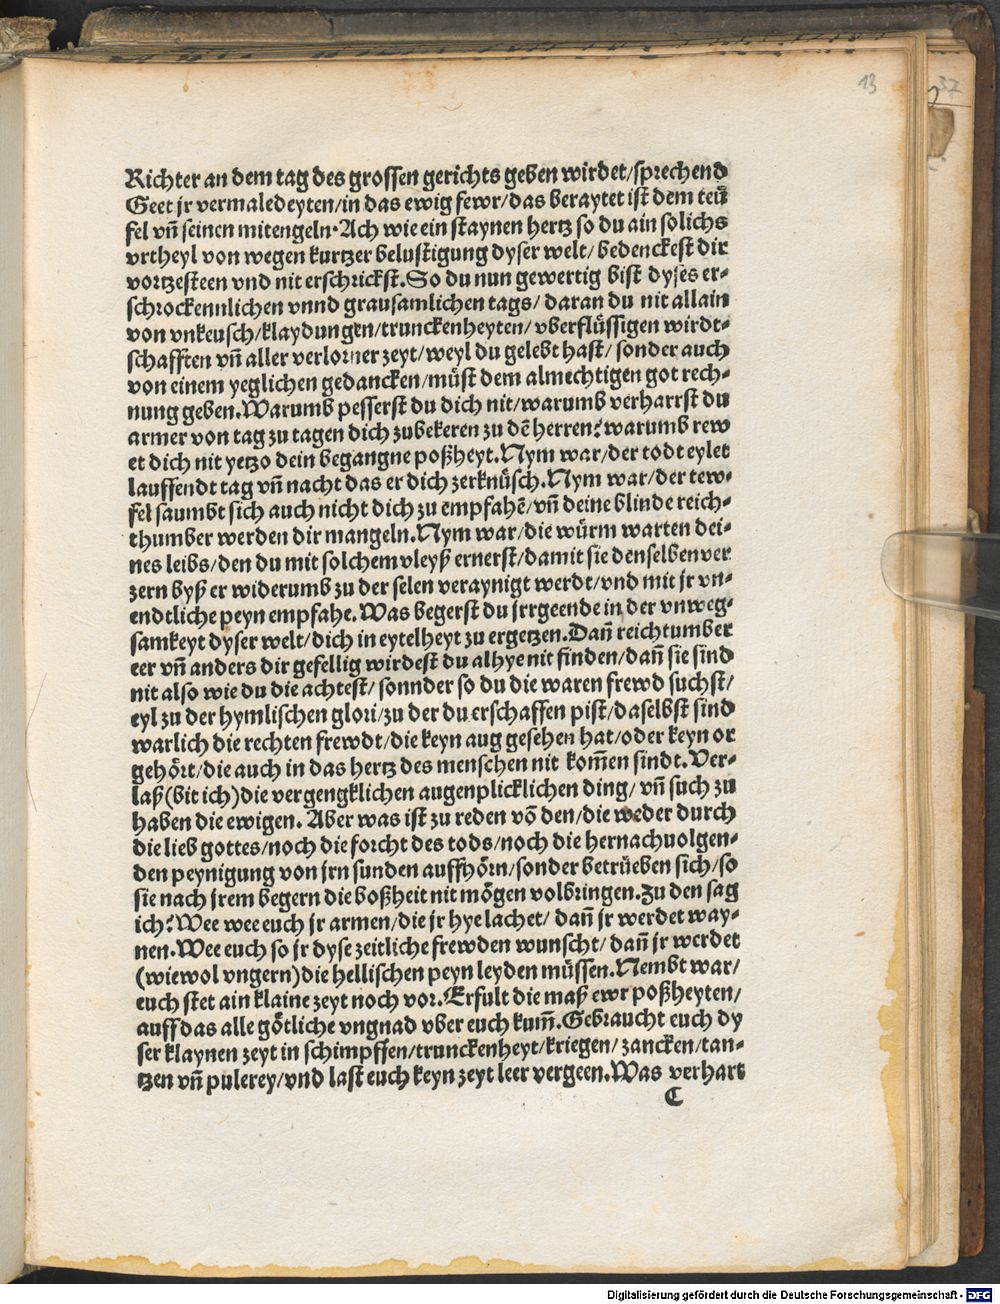 13
37
Richter an dem tag des grossen gerichts geben wirdet/sprechend
Geet jr vermaledeyten/in das ewig fewr/das beraytet ist dem teü
fel vñ seinen mitengeln·Ach wie ein staynen hertz so du ain solichs
vrtheyl von wegen kurtzer belustigung dyser welt/bedenckest dir
vortzesteen vnd nit erschrickst.So du nun gewertig bist dyses er-
schrockennlichen vnnd grausamlichen tags/daran du nit allain
von vnkeusch/klaydungen/trunckenheyten/vberflüssigen wirdt-
schafften vñ aller verlorner zeyt/weyl du gelebt hast/sonder auch
von einem yeglichen gedancken/müst dem almechtigen got rech-
nung geben.Warumb pesserst du dich nit/warumb verharrst du
armer von tag zu tagen dich zubekeren zu dē herren?warumb rew
et dich nit yetzo dein begangne poßheyt.Nym war/der todt eylet
lauffendt tag vñ nacht das er dich zerknüsch.Nym war/der tew-
fel saumbt sich auch nicht dich zu empfahē/vñ deine blinde reich-
thumber werden dir mangeln.Nym war/die würm warten dei-
nes leibs/den du mit solchem vleyß ernerst/damit sie denselben ver
zern byß er widerumb zu der selen veraynigt werdt/vnd mit jr vn-
endtliche peyn empfahe.Was begerst du jrrgeende in der vnweg-
samkeyt dyser welt/dich in eytelheyt zu ergetzen.Dañ reichtumber
eer vñ anders dir gefellig wirdest du alhye nit finden/dañ sie sind
nit also wie du die achtest/sonnder so du die waren frewd suchst/
eyl zu der hymlischen glori/zu der du erschaffen pist/daselbst sind
warlich die rechten frewdt/die keyn aug gesehen hat/oder keyn or
gehört/die auch in das hertz des menschen nit kom̄en sindt.Ver-
laß(bit ich)die vergengklichen augenplicklichen ding/vñ such zu
haben die ewigen.Aber was ist zu reden vō den/die weder durch
die lieb gottes/noch die forcht des tods/noch die hernachuolgen-
den peynigung von jrn sunden auffhörn/sonder betrüeben sich/so
sie nach jrem begern die boßheit nit mögen volbringen.Zu den sag
ich?Wee wee euch jr armen/die jr hye lachet/dañ jr werdet way-
nen.Wee euch so jr dyse zeitliche frewden wunscht/dañ jr werdet
(wiewol vngern)die hellischen peyn leyden müssen.Nembt war/
euch stet ain klaine zeyt noch vor.Erfult die maß ewr poßheyten/
auff das alle götliche vngnad vber euch kum̄.Gebraucht euch dy
ser klaynen zeyt in schimpffen/trunckenheyt/kriegen/zancken/tan-
tzen vñ pulerey/vnd last euch keyn zeyt leer vergeen.Was verhart
C
Digitalisierung gefördert durch die Deutsche Forschungsgemeinschaft - DFG